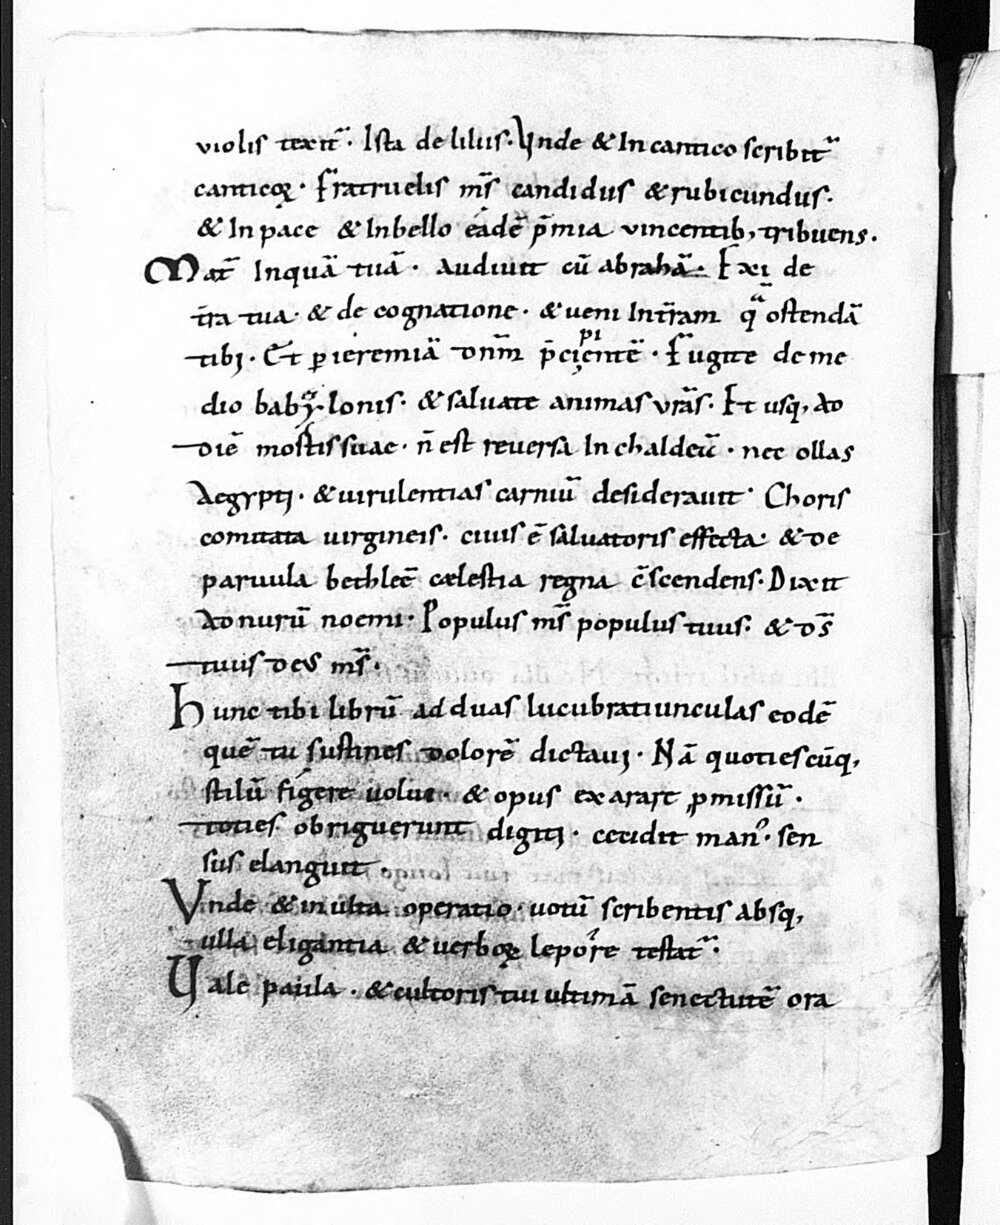 violis texit᷑ · Ista de liliis · Unde & In cantico scribit᷑
canticoꝝ · Fratruelis m̅s candidus & rubicundus ·
& In pace & Inbello eadē p̄mia vincentib; tribuens .
Mat̅ Inquā tuā · Audiuit cū abrahā · Exi de
t̅ra tua · & de cognatione · & ueni Int̅ram qͣ̄ ostendā
tibi · Et ꝑ ieremiā dn̅m p̄cipientē · Fugite de me
dio babylonis · & saluate animas vr̅as · Et usq; ad
diē mortis suae · n̄ est reuersa In chaldeā · nec ollas
Aegypti · & uirulentias carniū desiderauit · Choris
comitata uirgineis · ciuis ē saluatoris effecta · & de
paruula bethleē caelestia regna c̄scendens · Dixit
Ad nurū noemi · Populus m̅s populus tuus · & d̅s
tuus deus m̅s ·
Hunc tibi librū ad duas lucubratiunculas eodē
quē tu sustines dolorē dictaui · Nā quotiescūq;
stilū figere uolui · & opus exarare ꝓmissū ·
toties obriguerunt digiti · cecidit man᷒ · sen
sus elanguit ·
Unde & inulta operatio · uotū scribentis absq;
ulla eligantia & uerboꝝ lepore testat᷑ ·
Uale paula · & cultoris tui ultimā senectutē ora